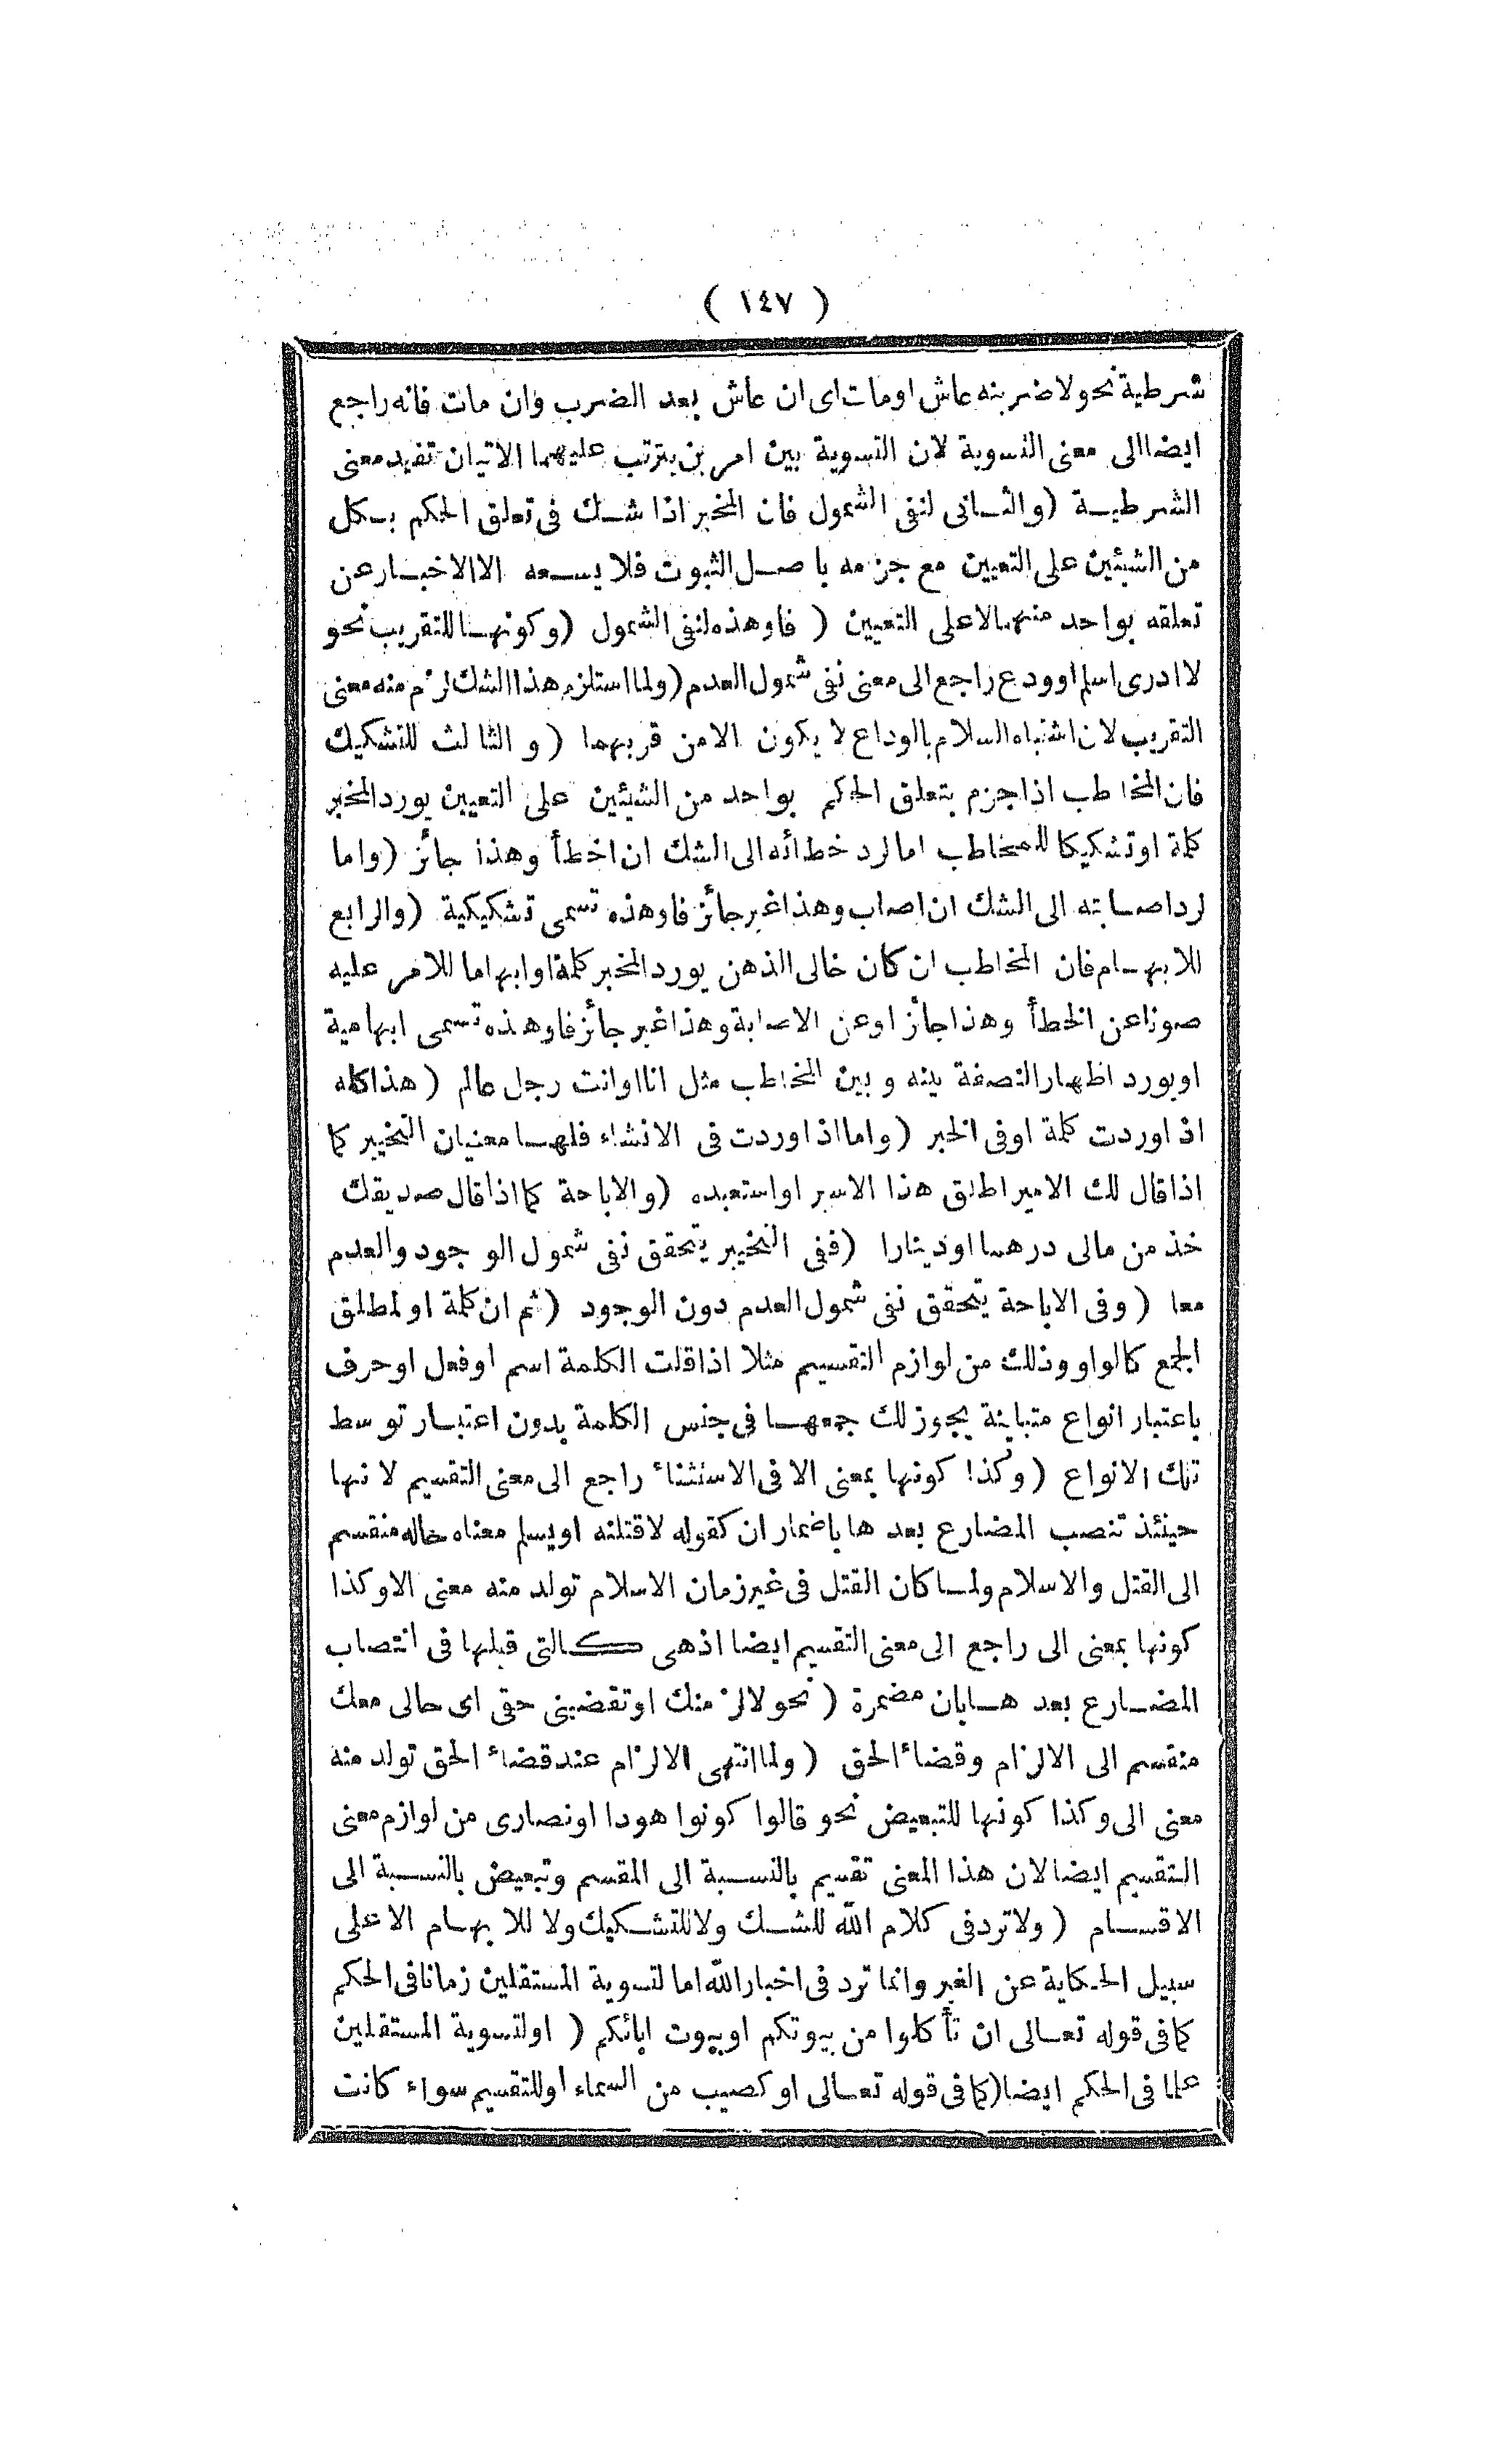 ( ١٤٧ )
شرطية نحو لاضربنه عاش او مات اى ان عاش بعد الضرب وان مات فانه راجع
ايضا الى معنى التسوية لان التسوية بين امرين يترتب عليهما الاتيان تفيد معنى
الشرطيــة (والثــانى لنفى الشمول فان المخبر اذا شــك فى تعلق الحكم بــكل
من الشيئين على التعيين مع جزمه باصــل الثبوت فلا يســعه الا الاخبــار عن
تعلقه بواحد منهما لا على التعيين (فاو هذه لنفى الشمول (وكونهــا للتقريب نحو
لا ادرى اسلم او ودع راجع الى معنى نفى شمول العدم (ولما استلزم هذا الشك لزم منه معنى
التقريب لان اشتباه السلام بالوداع لا يكون الا من قربهما (والثالث للتشكيك
فان المخاطب اذا جزم بتعلق الحكم بواحد من الشيئين على التعيين يورد المخبر
كلمة او تشكيكا للمخاطب اما لرد خطائه الى الشك ان اخطأ وهذا جائز (واما
لرد اصــابته الى الشك ان اصاب وهذا غير جائز فاو هذه تسمى تشكيكية (والرابع
للابهــام فان المخاطب ان كان خالى الذهن يورد المخبر كلمة او ابهاما للامر عليه
صونا عن الخطأ وهذا جائز او عن الاصابة وهذا غير جائز فاو هذه تسمى ابهامية
او يورد اظهار النصفة بينه وبين المخاطب مثل انا او انت رجل عالم (هذا كله
اذا وردت كلمة او فى الخبر (واما اذا وردت فى الانشاء فلهــا معنيان التخيير كما
اذا قال لك الامير اطلق هذا الاسير او استعبده (والاباحة كما اذا قال صديقك
خذ من مالى درهما او دينارا (ففى التخيير يتحقق نفى شمول الوجود والعدم
معا (وفى الاباحة يتحقق نفى شمول العدم دون الوجود (ثم ان كلمة او لمطلق
الجمع كالواو وذلك من لوازم التقسيم مثلا اذا قلت الكلمة اسم او فعل او حرف
باعتبار انواع متباينة يجوز لك جمعهــا فى جنس الكلمة بدون اعتبــار توسط
تلك الانواع (وكذا كونها بمعنى الا فى الاستثناء راجع الى معنى التقسيم لانها
حينئذ تنصب المضارع بعدها باضمار ان كقوله لاقتلنه او يسلم معناه حاله منقسم
الى القتل والاسلام ولمــا كان القتل فى غير زمان الاسلام تولد منه معنى الا وكذا
كونها بمعنى الى راجع الى معنى التقسيم ايضا اذ هى كــالتى قبلها فى انتصاب
المضــارع بعد هــا بان مضمرة (نحو لالزمنك او تقضينى حقى اى حالى معك
منقسم الى الالزام وقضاء الحق (ولما انتهى الالزام عند قضاء الحق تولد منه
معنى الى وكذا كونها للتبعيض نحو قالوا كونوا هودا او نصارى من لوازم معنى
التقسيم ايضا لان هذا المعنى تقسيم بالنســبة الى المقسم وتبعيض بالنســبة الى
الاقســام (ولا ترد فى كلام الله للشــك ولا للتشــكيك ولا للابهــام الا على
سبيل الحــكاية عن الغير وانما ترد فى اخبار الله اما لتسوية المستقلين زمانا فى الحكم
كما فى قوله تعــالى ان تأكلوا من بيوتكم او بيوت ابائكم (او لتسوية المستقلين
علما فى الحكم ايضا (كما فى قوله تعــالى او كصيب من السماء او للتقسيم سواء كانت